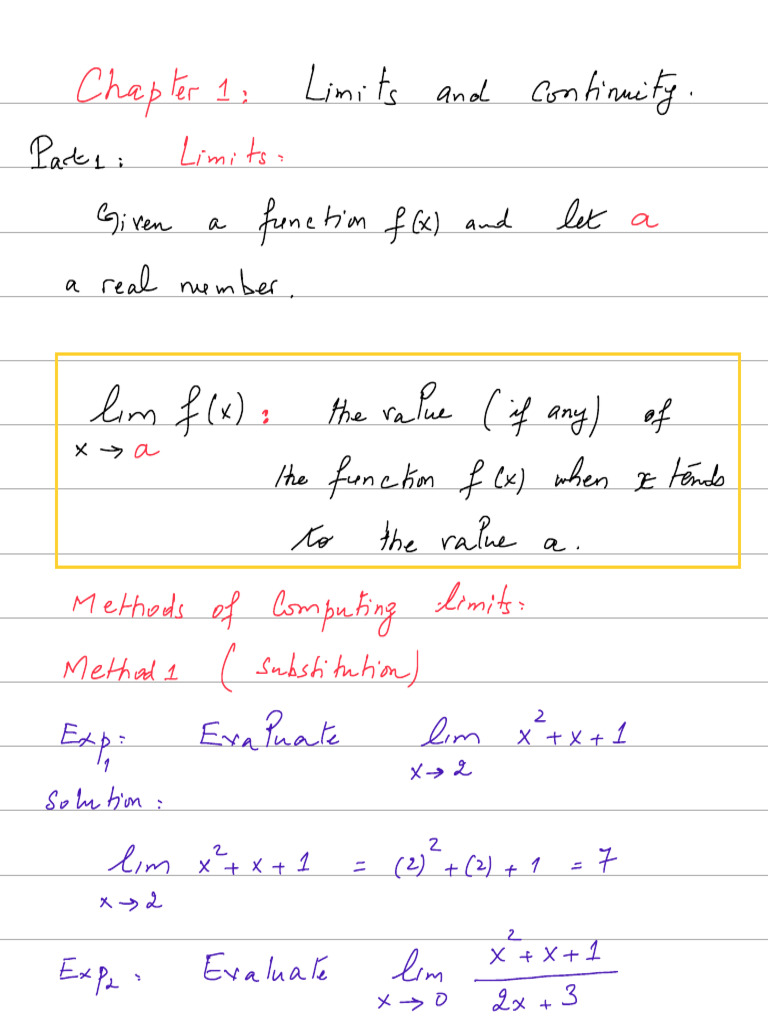 Chapter 1: Limits and continuity.
Part 1: Limits:
Given a function f(x) and let a
a real number.
lim f(x): the value (if any) of
x → a
the function f(x) when x tends
to the value a.
Methods of Computing limits:
Method 1 (substitution)
Exp₁: Evaluate lim x² + x + 1
x → 2
Solution:
lim x² + x + 1 = (2)² + (2) + 1 = 7
x → 2
Exp₂: Evaluate lim (x² + x + 1)/(2x + 3)
x → 0